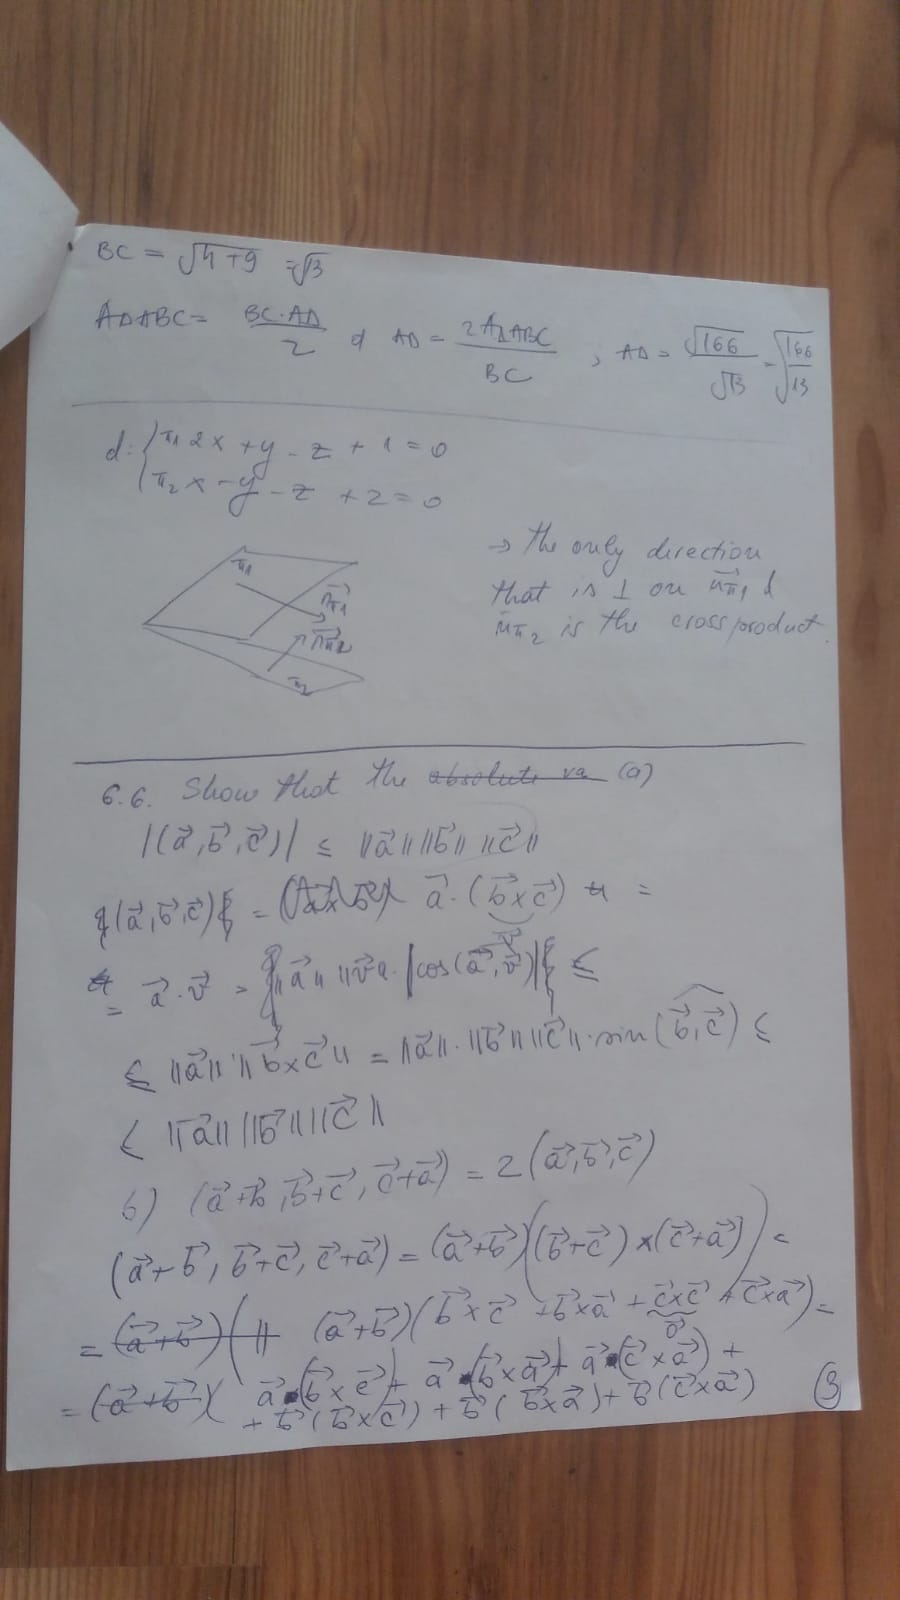 BC = √4+9 = √13
A△ABC = BC·AD / 2 ⇒ AD = 2A△ABC / BC ; AD = √166 / √13 = √166/13
d: { π1 2x + y - z + 1 = 0
π2 x - y - z + 2 = 0
→ the only direction
that is ⊥ on n⃗π1 &
n⃗π2 is the cross product.
π1
n⃗π1
n⃗π2
π2
6.6. Show that the absolute va (a)
|(a⃗,b⃗,c⃗)| ≤ ||a⃗|| ||b⃗|| ||c⃗||
(a⃗,b⃗,c⃗) = a⃗·(b⃗×c⃗) =
= a⃗·v⃗ = ||a⃗|| ||v⃗||·|cos(a⃗,v⃗)| ≤
≤ ||a⃗||·||b⃗×c⃗|| = ||a⃗||·||b⃗|| ||c⃗||·sin(b⃗,c⃗) ≤
≤ ||a⃗|| ||b⃗|| ||c⃗||
b) (a⃗+b⃗, b⃗+c⃗, c⃗+a⃗) = 2(a⃗,b⃗,c⃗)
(a⃗+b⃗, b⃗+c⃗, c⃗+a⃗) = (a⃗+b⃗)((b⃗+c⃗)×(c⃗+a⃗)) =
= (a⃗+b⃗)( (a⃗+b⃗)(b⃗×c⃗ + b⃗×a⃗ + c⃗×c⃗ + c⃗×a⃗) =
0⃗
= (a⃗+b⃗)( a⃗·(b⃗×c⃗) + a⃗·(b⃗×a⃗) + a⃗·(c⃗×a⃗) +
+ b⃗(b⃗×c⃗) + b⃗(b⃗×a⃗) + b⃗(c⃗×a⃗)
3